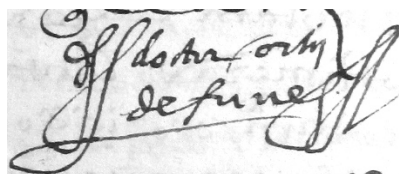 doctor ortiz
de funes